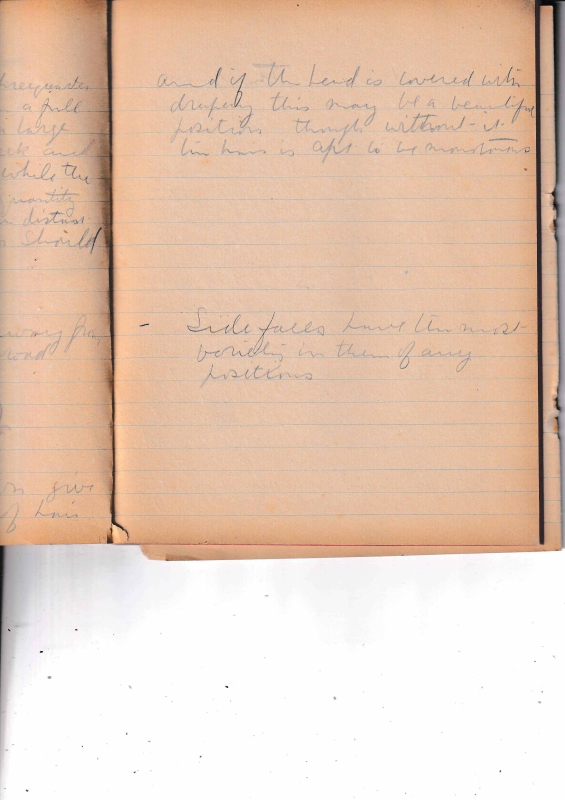 threequarter
a full
large
and
while the
quantity
distanc
should
away from
give
of hair
and if the head is covered with
drapery this may be a beautiful
position though without it
the hair is apt to be monotonous
- Side faces have the most
variety in them of any
positions